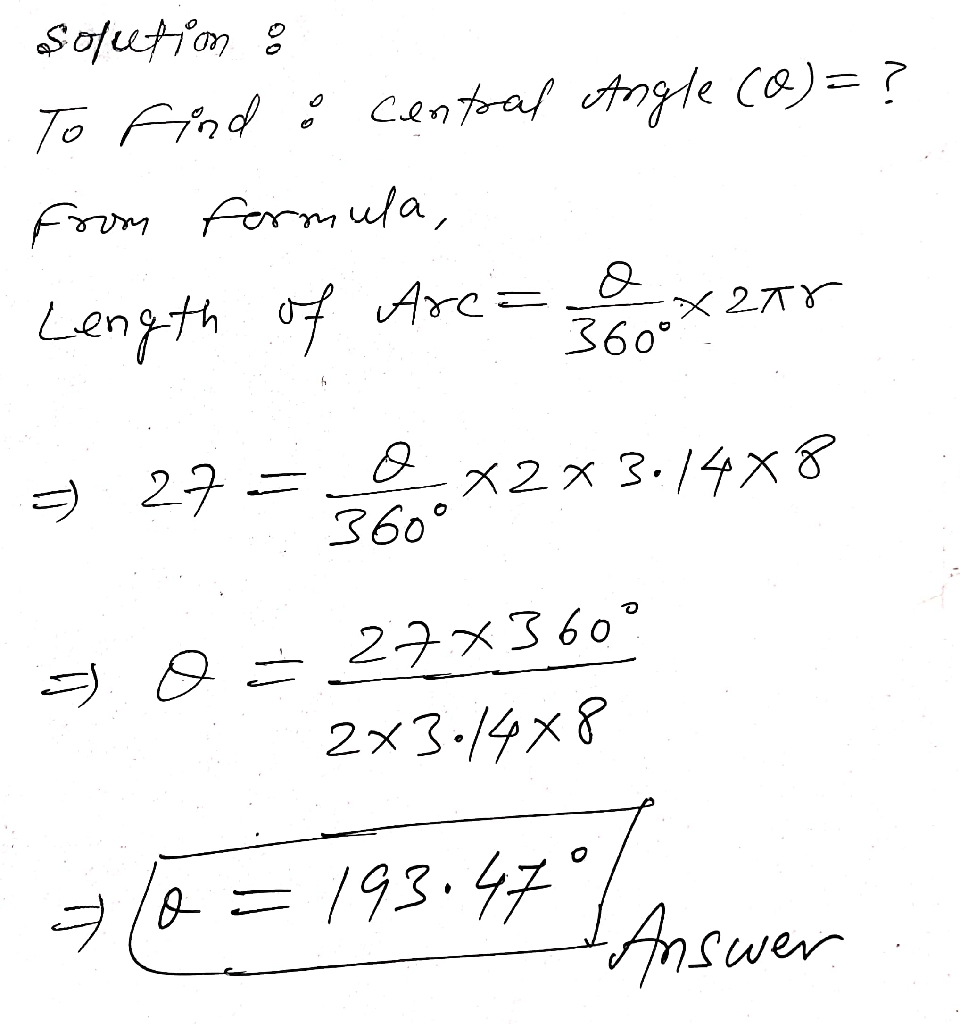 Solution :
To Find : Central Angle (θ) = ?
From formula,
Length of Arc = θ/360° × 2πr
⇒ 27 = θ/360° × 2 × 3.14 × 8
⇒ θ = 27 × 360° / 2 × 3.14 × 8
⇒ θ = 193.47° Answer